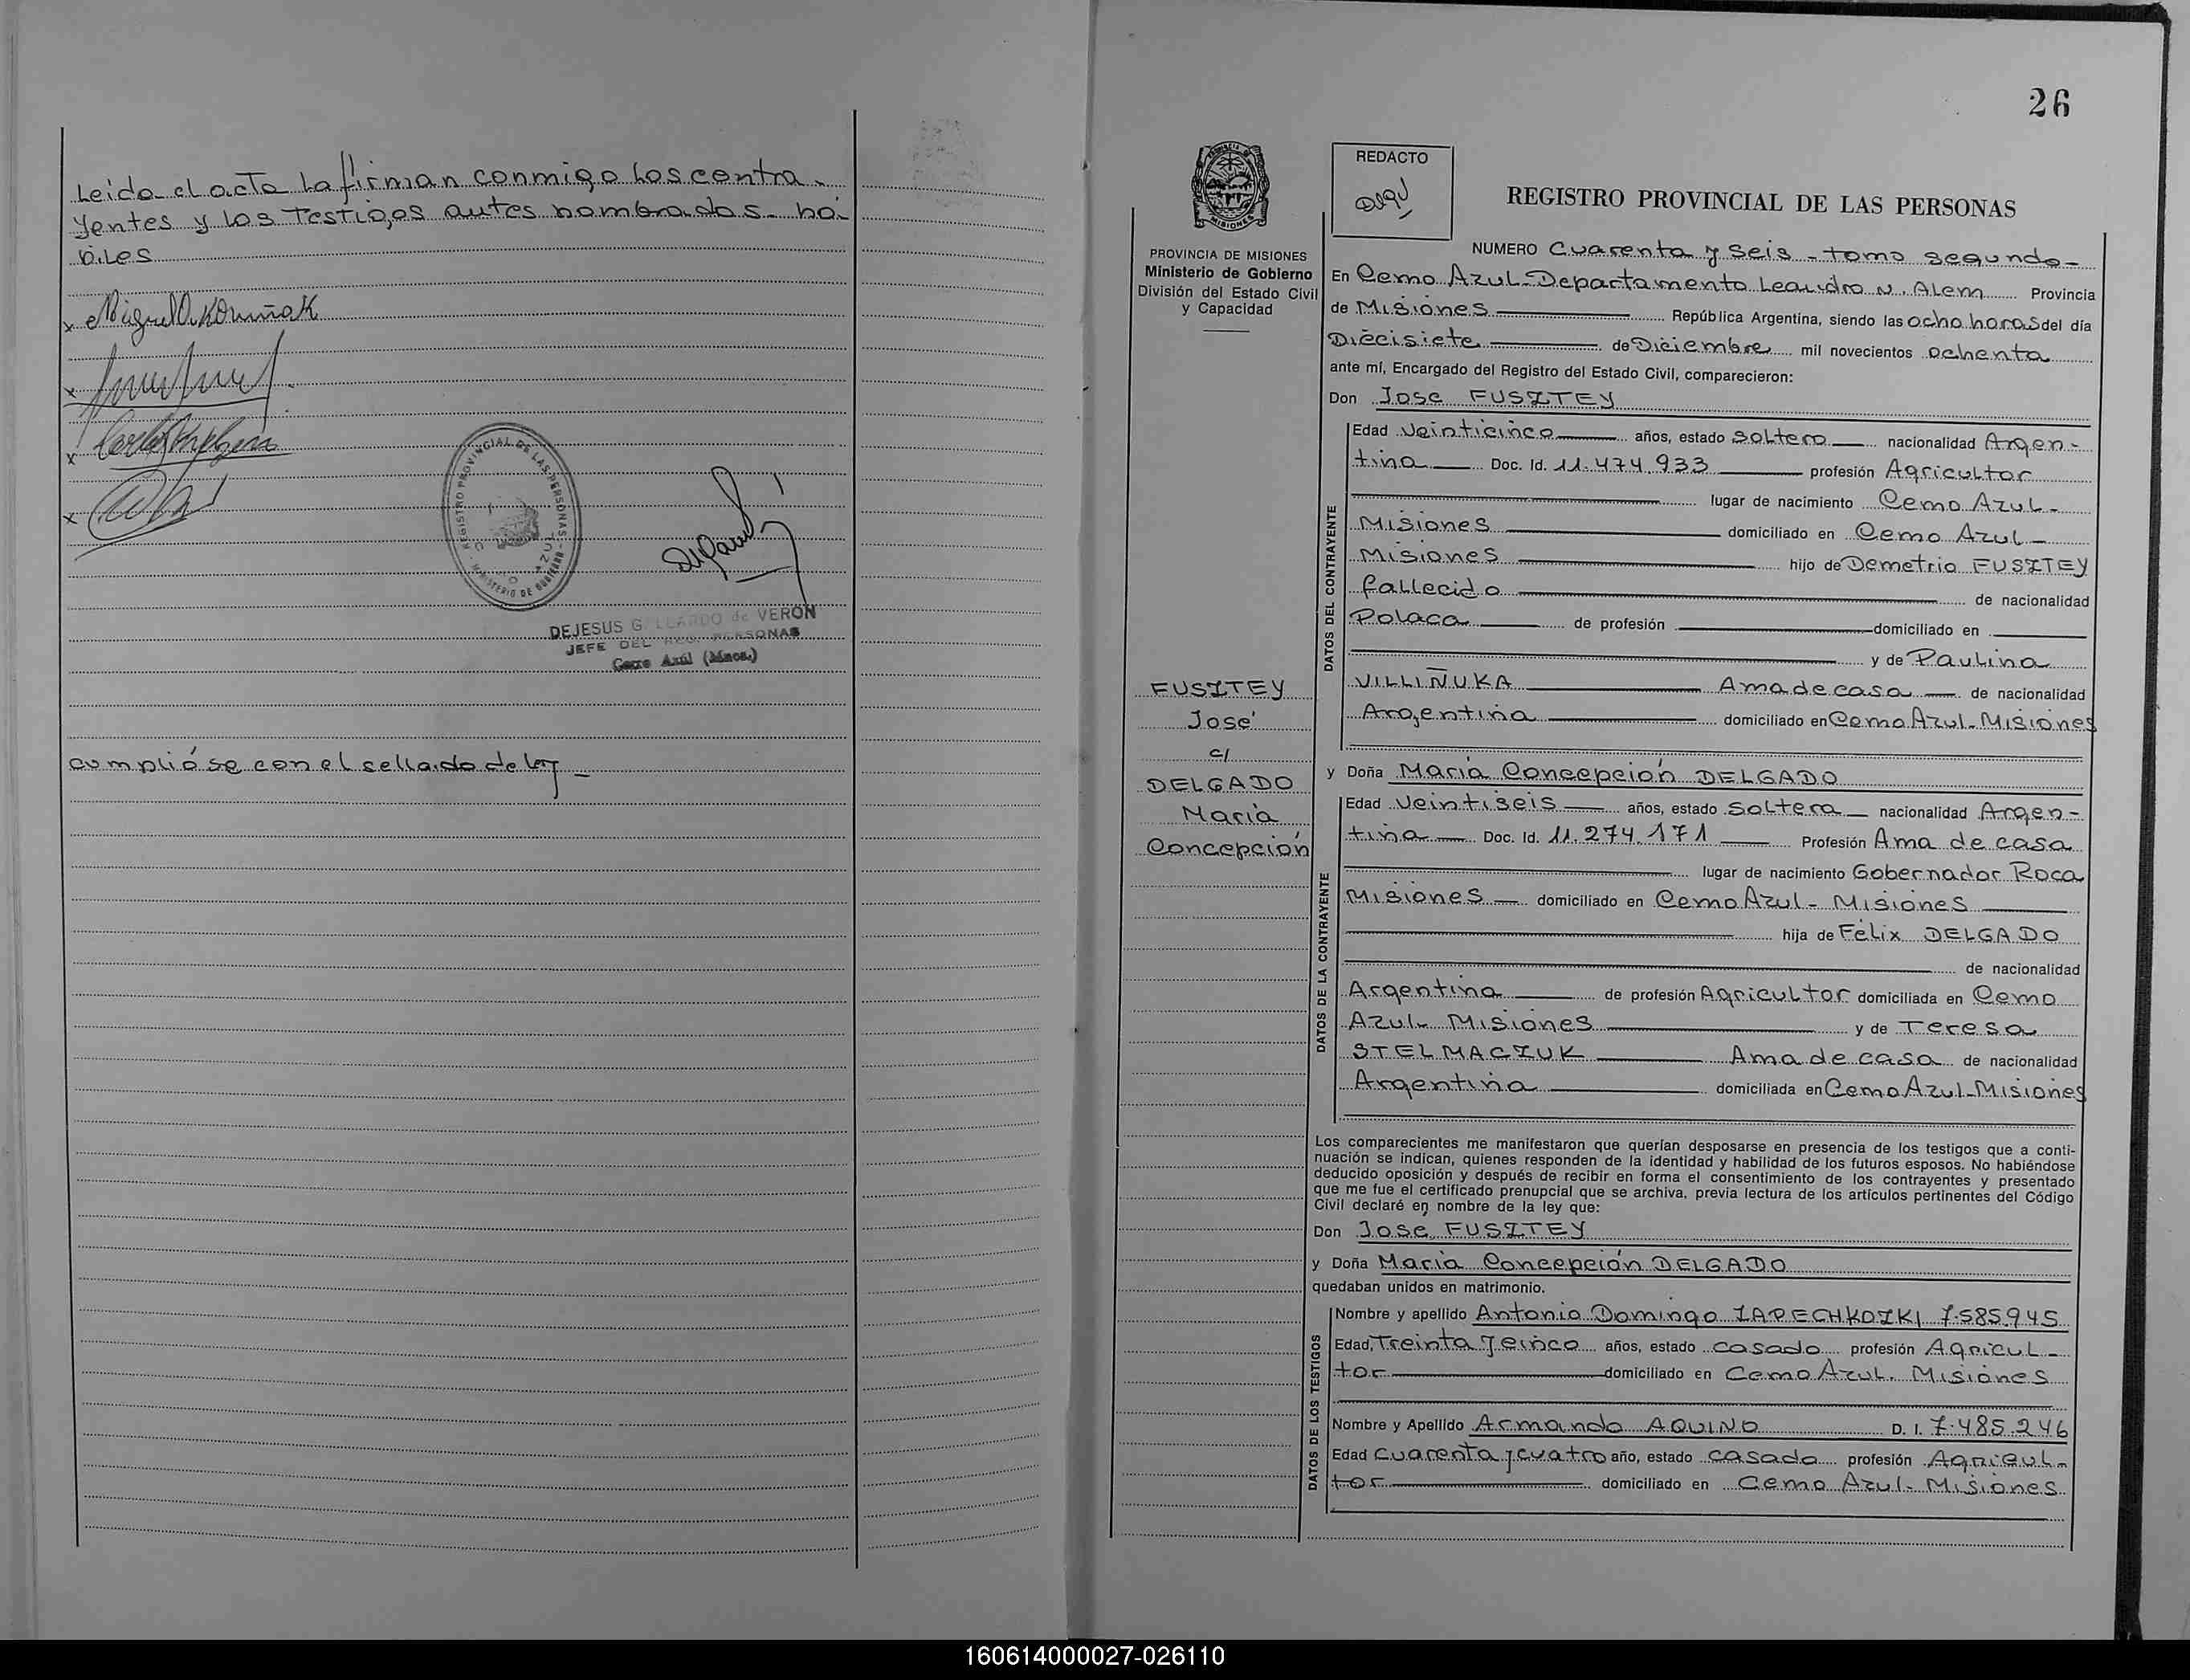 Leido el acto la firman conmigo los contra-
yentes y los testigos antes nombrados há-
biles
REGISTRO PROVINCIAL DE LAS PERSONAS
MINISTERIO DE GOBIERNO
DEJESUS GALLARDO de VERON
JEFE DEL REG. PERSONAS
Cerro Azúl (Mnes.)
cumplióse con el sellado de ley -
26
REDACTO
REGISTRO PROVINCIAL DE LAS PERSONAS
PROVINCIA DE MISIONES
Ministerio de Gobierno
División del Estado Civil
y Capacidad
NUMERO Cuarenta y Seis - tomo segundo-
En Cerro Azul-Departamento Leandro N. Alem Provincia
de Misiones República Argentina, siendo las ocho horas del día
Diecisiete de Diciembre mil novecientos ochenta
ante mí, Encargado del Registro del Estado Civil, comparecieron:
Don Jose FUSZTEY
DATOS DEL CONTRAYENTE
Edad Veinticinco años, estado soltero nacionalidad Argen-
tina Doc. Id. 11.474.933 profesión Agricultor
lugar de nacimiento Cerro Azul-
Misiones domiciliado en Cerro Azul-
Misiones hijo de Demetrio FUSZTEY
fallecido de nacionalidad
Polaca de profesión domiciliado en
y de Paulina
VILLIÑUKA Ama de casa de nacionalidad
Argentina domiciliado en Cerro Azul-Misiones
FUSZTEY
José
c/
DELGADO
María
Concepción
y Doña María Concepción DELGADO
DATOS DE LA CONTRAYENTE
Edad Veintiseis años, estado soltera nacionalidad Argen-
tina Doc. Id. 11.274.171 Profesión Ama de casa
lugar de nacimiento Gobernador Roca
Misiones domiciliado en Cerro Azul- Misiones
hija de Félix DELGADO
de nacionalidad
Argentina de profesión Agricultor domiciliada en Cerro
Azul- Misiones y de Teresa
STELMACZUK Ama de casa de nacionalidad
Argentina domiciliada en Cerro Azul-Misiones
Los comparecientes me manifestaron que querían desposarse en presencia de los testigos que a conti-
nuación se indican, quienes responden de la identidad y habilidad de los futuros esposos. No habiéndose
deducido oposición y después de recibir en forma el consentimiento de los contrayentes y presentado
que me fue el certificado prenupcial que se archiva, previa lectura de los artículos pertinentes del Código
Civil declaré en nombre de la ley que:
Don Jose FUSZTEY
y Doña María Concepción DELGADO
quedaban unidos en matrimonio.
DATOS DE LOS TESTIGOS
Nombre y apellido Antonio Domingo 7.585.945
Edad Treinta y cinco años, estado casado profesión Agricul-
tor domiciliado en Cerro Azul. Misiones
Nombre y Apellido Armando AQUINO D. I. 7.485.246
Edad Cuarenta y cuatro año, estado casado profesión Agricul-
tor domiciliado en Cerro Azul- Misiones
160614000027-026110